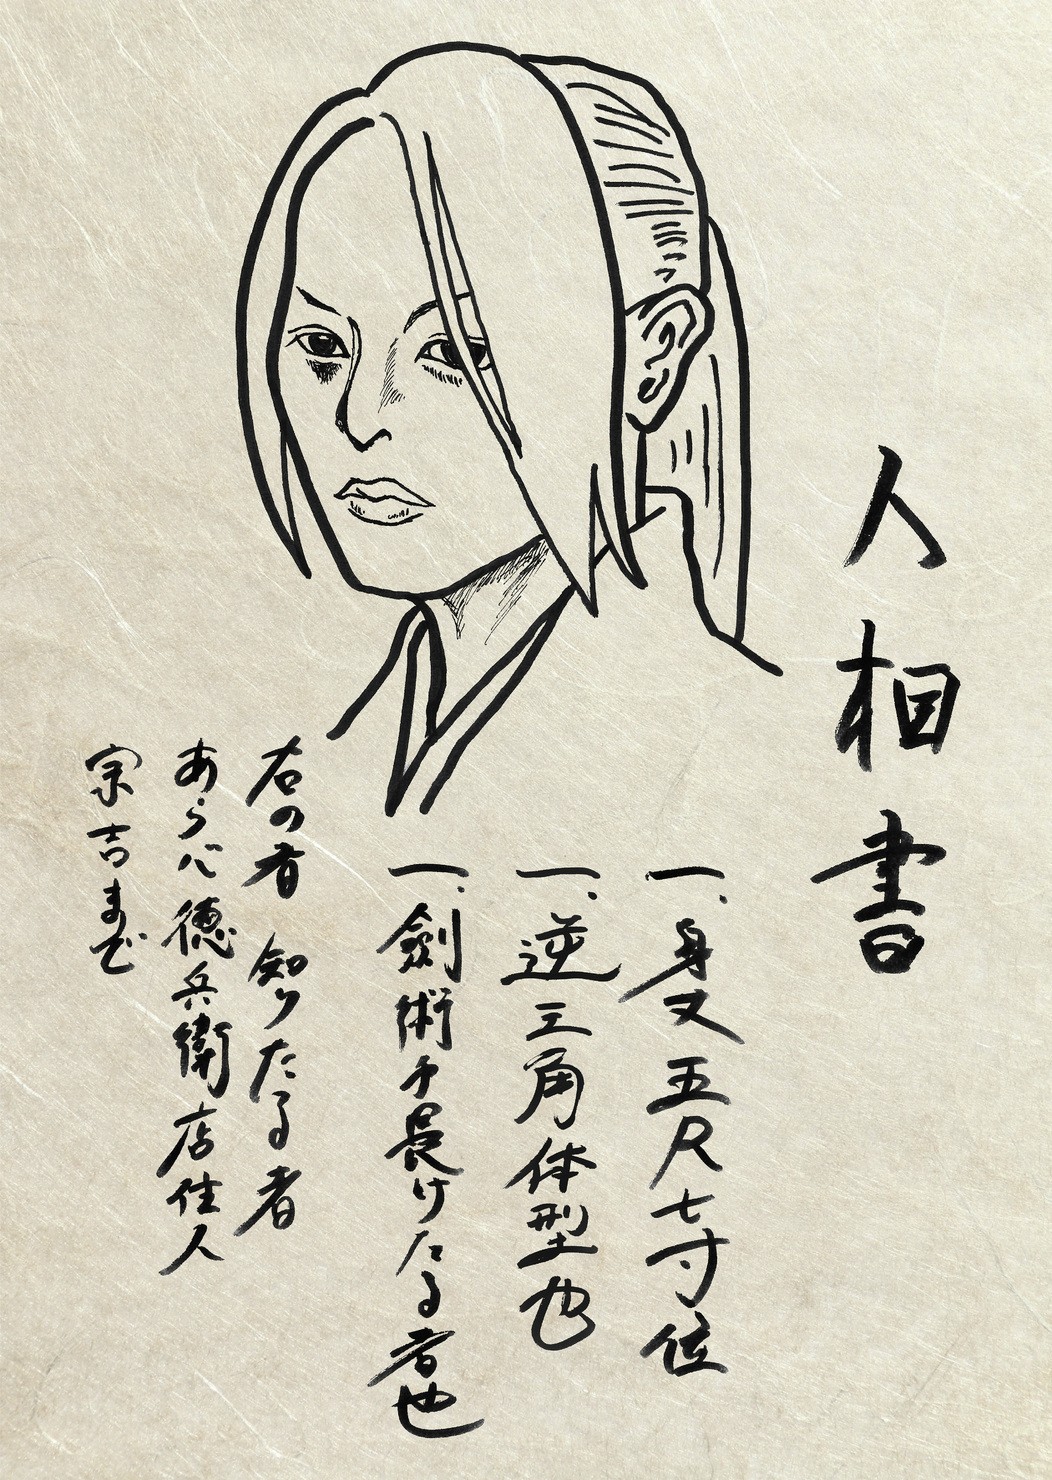 人相書
一、身丈五尺七寸位
一、逆三角体型也
一、劍術ヲ長けたる者也
右の者 知りたる者
あらば徳兵衛店住人
宗吉まで